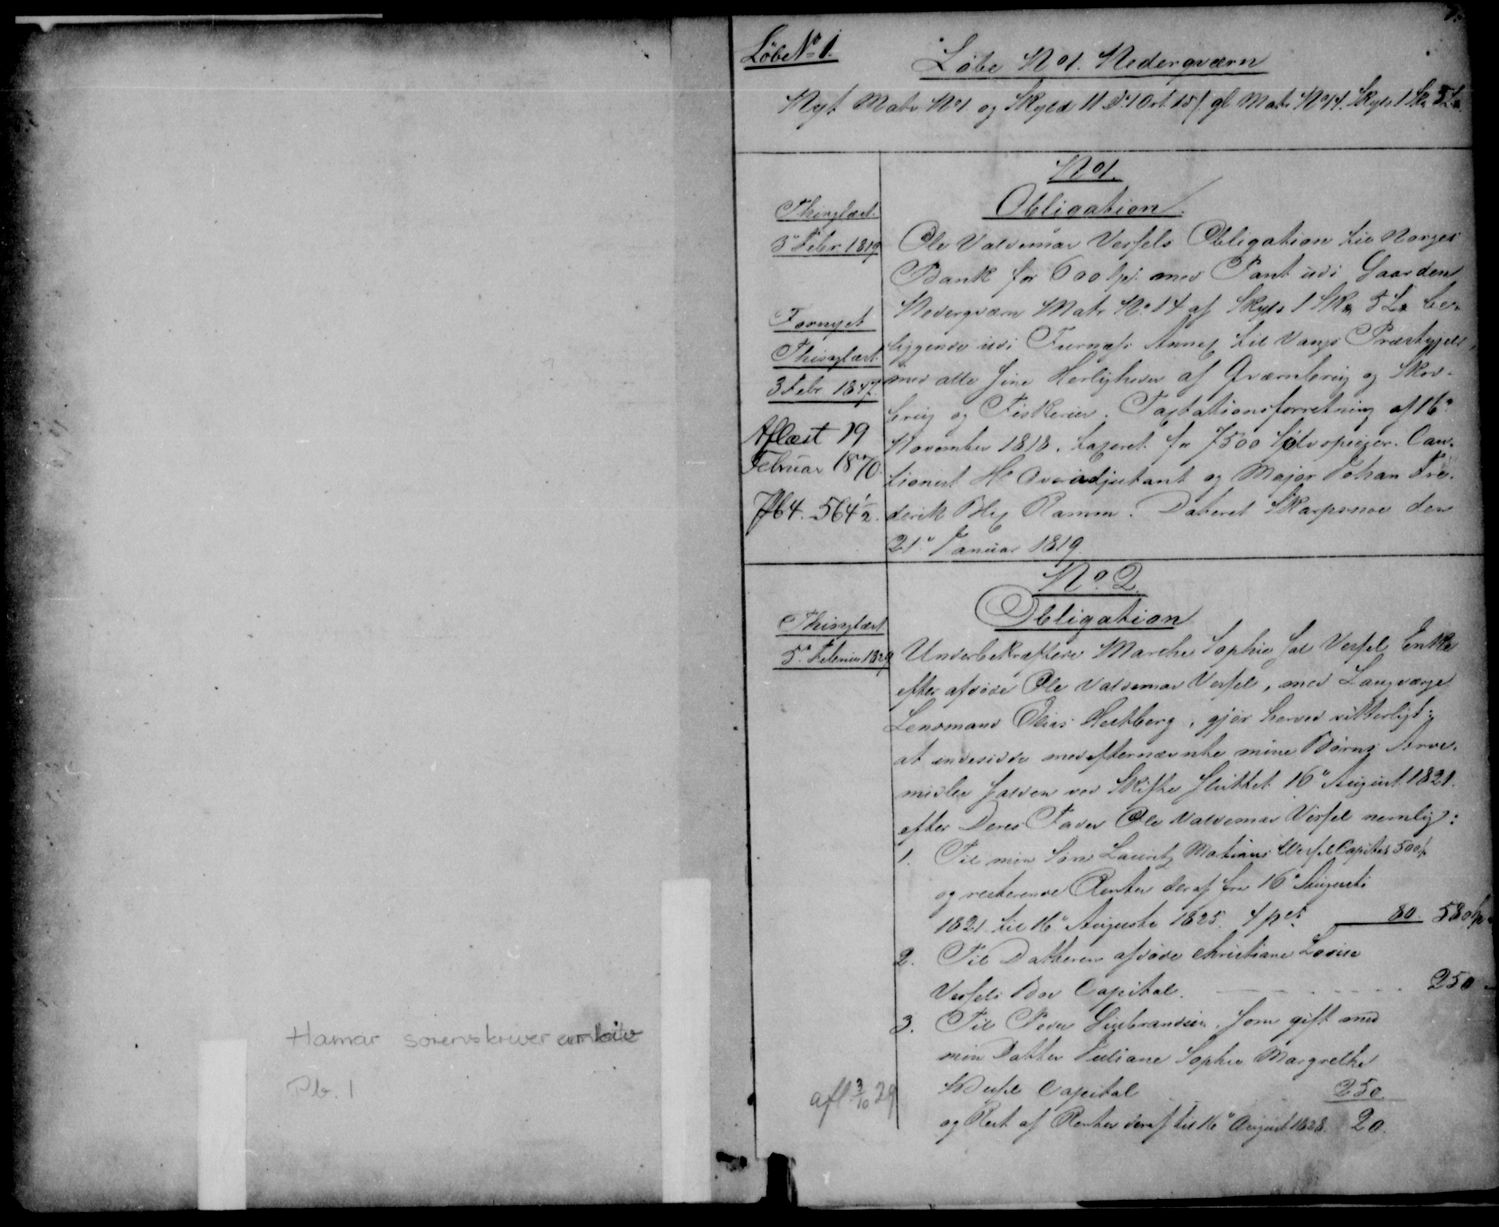 Hamar sorenskriverarkiv
Pb. 1
Løbe No 1.
Løbe No 1. Nedergværn
Nyt Matr No 1 og Skyld 11 D 1 Ort 15 ß gl Matr No 14. Skyld 1
No 1.
Obligation.
Thinglæst
3' Febr 1819
Fornyet
Thinglæst
3 Febr 1847.
Aflæst 19
Februar 1870.
564½.
Ole Valdemar Vessels Obligation til Norges
Bank for 600 Sp. med Pant udi Gaarden
Nedergværn Matr No 14 af Skyld 1 5 be-
liggende udi Furnæs Annex til Vangs Præstegjeld,
med alle sine Herligheder af Qværnbrug og Skov-
brug og Fiskerier. Taxtationsforretning af 16'
November 1818. taxeret for 7500 Sølvspecier. Cau-
tionist Hr Overadjutant og Major Johan Fre-
derik Ramm. Dateret Skarpsnoe den
21' Januar 1819
No. 2
Obligation
Thinglæst
5' Februar
Underbekræftede Marthe Sophie sal Vessel Enke
efter afdøde Ole Valdemar Vessel, med Laugværge
Lensmand Hertberg, gjør herved vitterligt;
at indesidde med efternævnte mine Børns Arve-
midler falden ved Skifte sluttet 16' August 1821.
efter Deres Fader Ole Valdemar Vessel nemlig:
1. Til min Søn Lauritz Mathias Wessel Capital 500
og resterende Renter deraf fra 16' Augusti
1821. til 16' Augusti 1825. 4 pCt. 80. 580
2. Til Datteren afdøde Christiane Lovise
Vessels Boe Capital. 250
3. Til Peder som gift med
min Datter Juliane Sophie Margrethe
Wessel Capital 250
og Rest af Renter deraf til 16' August 1828. 20.
afl 3/10 29